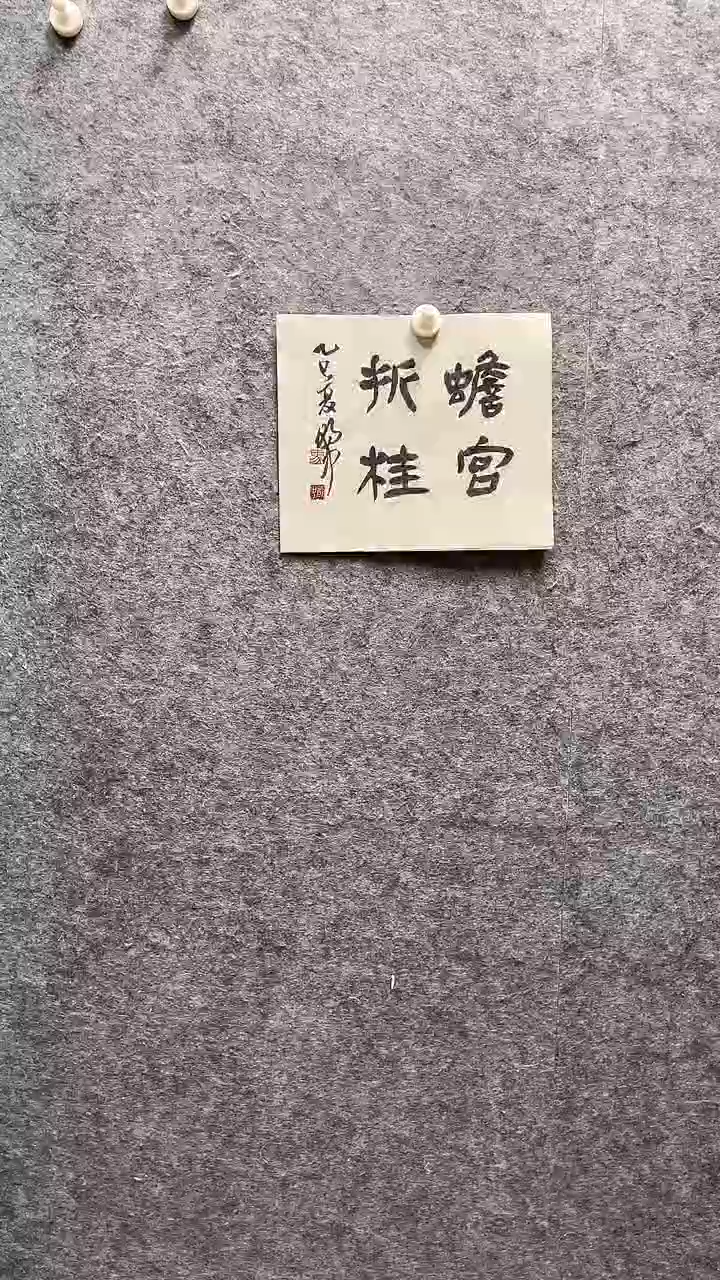 蟾宫
折桂
乙巳夏